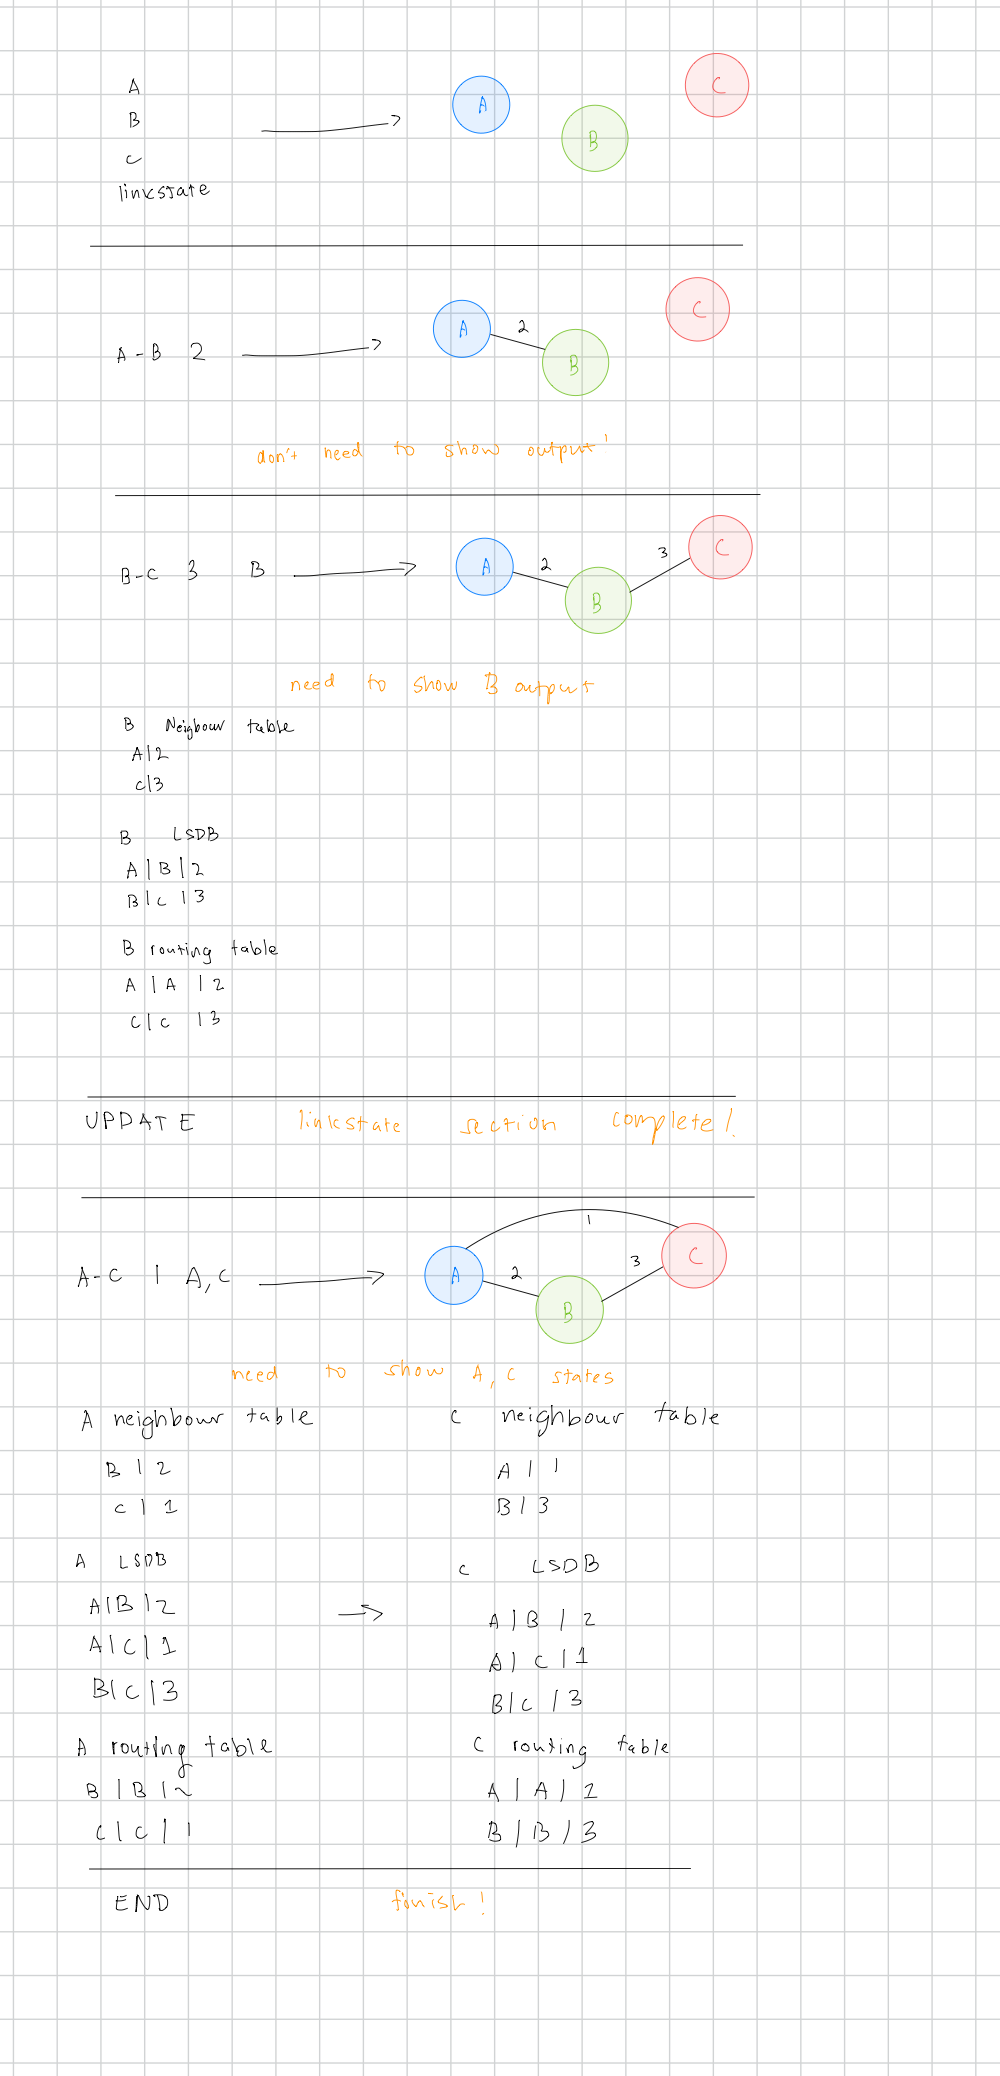 A
B
C
linkstate
A
B
C
A-B 2
A
2
B
C
don't need to show output!
B-C 3 B
A
2
B
3
C
need to show B output
B Neigbour table
A|2
C|3
B LSDB
A|B|2
B|C|3
B routing table
A|A|2
C|C|3
UPDATE linkstate section complete!
A-C 1 A,C
A
2
B
3
C
1
need to show A, C states
A neighbour table
B|2
C|1
A LSDB
A|B|2
A|C|1
B|C|3
A routing table
B|B|2
C|C|1
C neighbour table
A|1
B|3
C LSDB
A|B|2
A|C|1
B|C|3
C routing table
A|A|1
B|B|3
END finish!